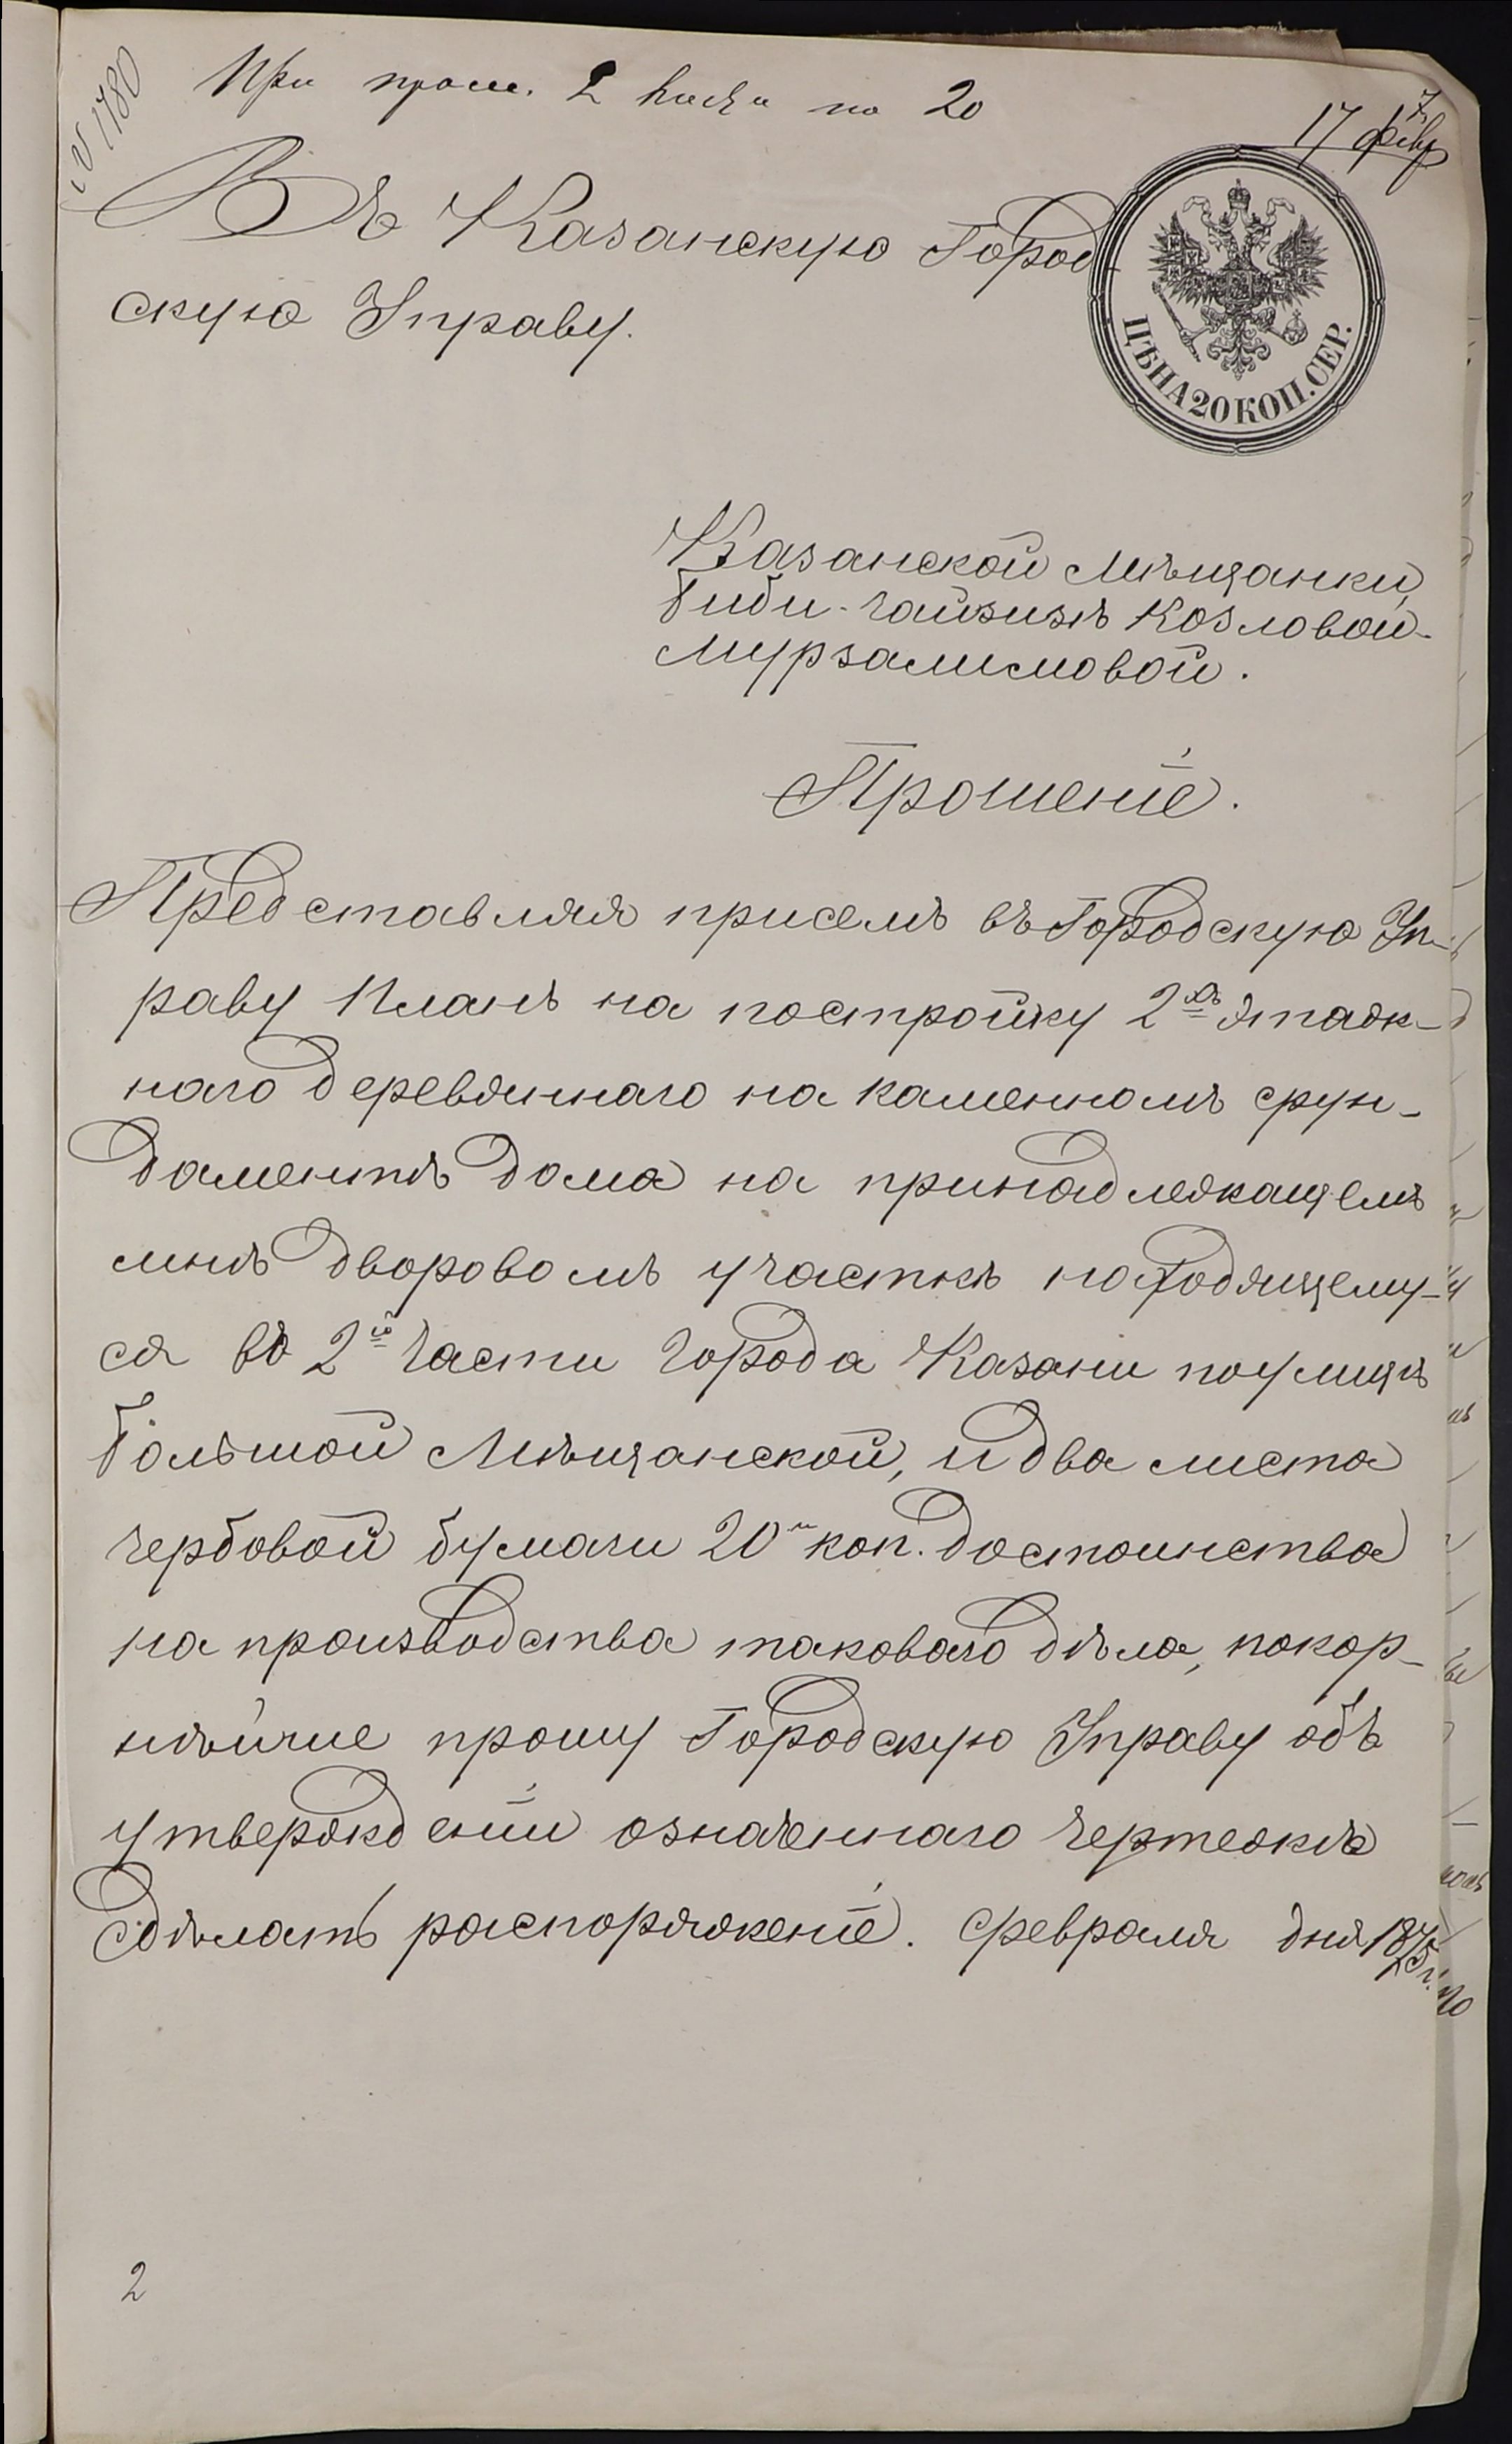 № 1780
При прош. 2 листа по 20
17 февр
7
Въ Казанскую Город-
скую Управу.
ЦѢНА 20 КОП. СЕР.
Казанской Мѣщанки,
Биби-Гайзизѣ Козловой-
Мурзалимовой.
Прошеніе.
Представляя присемъ въ Городскую Уп-
раву планъ на постройку 2хъ этаж-
наго деревяннаго на каменномъ фун-
даментѣ дома на принадлежащемъ
мнѣ дворовомъ участкѣ находящему-
ся во 2й части города Казани по улицѣ
Большой Мѣщанской, и два листа
гербовой бумаги 20и коп. достоинства
на производства таковаго дѣла, покор-
нѣйше прошу Городскую Управу объ
утвержденіи означеннаго чертежа
сдѣлать распоряженіе. Февраля дня 1875 г.
2